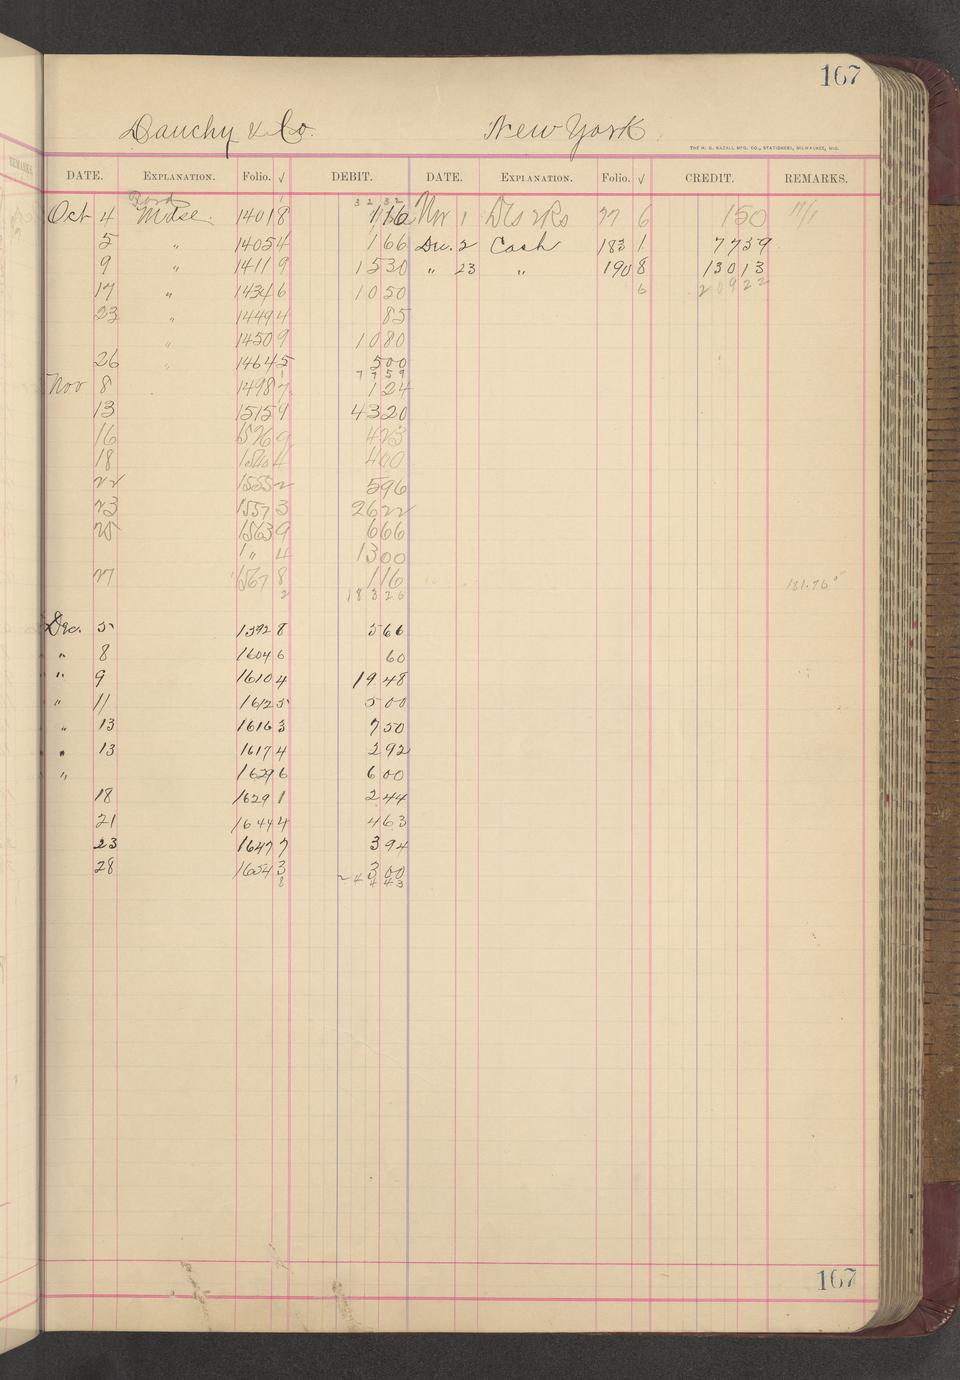 167
Dauchy & Co. New York
THE H. G. RAZALL MFG. CO., STATIONERS, MILWAUKEE, WIS.
DATE. EXPLANATION. Folio. √ DEBIT. DATE. EXPLANATION. Folio. √ CREDIT. REMARKS.
32 32
Oct 4 Mdse. 1401 8 116 Nov 1 77 6 150 11/1
5 " 1405 4 166 Dec. 2 Cash 183 1 7739
9 " 1411 9 1530 " 23 " 190 8 13013
17 " 1434 6 1050 6 20922
23 " 1449 4 85
" 1450 9 1080
26 " 1464 5 500
7759
Nov 8 1498 7 124
13 1515 9 4320
16 1526 9 423
18 4 400
22 1555 2 596
23 1557 3 2622
25 1563 9 666
1 " 4 1300
27 1567 8 116 181.76
2 18326
Dec. 5 1592 8 566
" 8 1604 6 60
" 9 1610 4 1948
" 11 1612 5 500
" 13 1616 3 750
" 13 1617 4 292
" 1629 6 600
18 1629 1 244
21 1644 4 463
23 1647 7 394
28 1654 3 300
8 24443
167